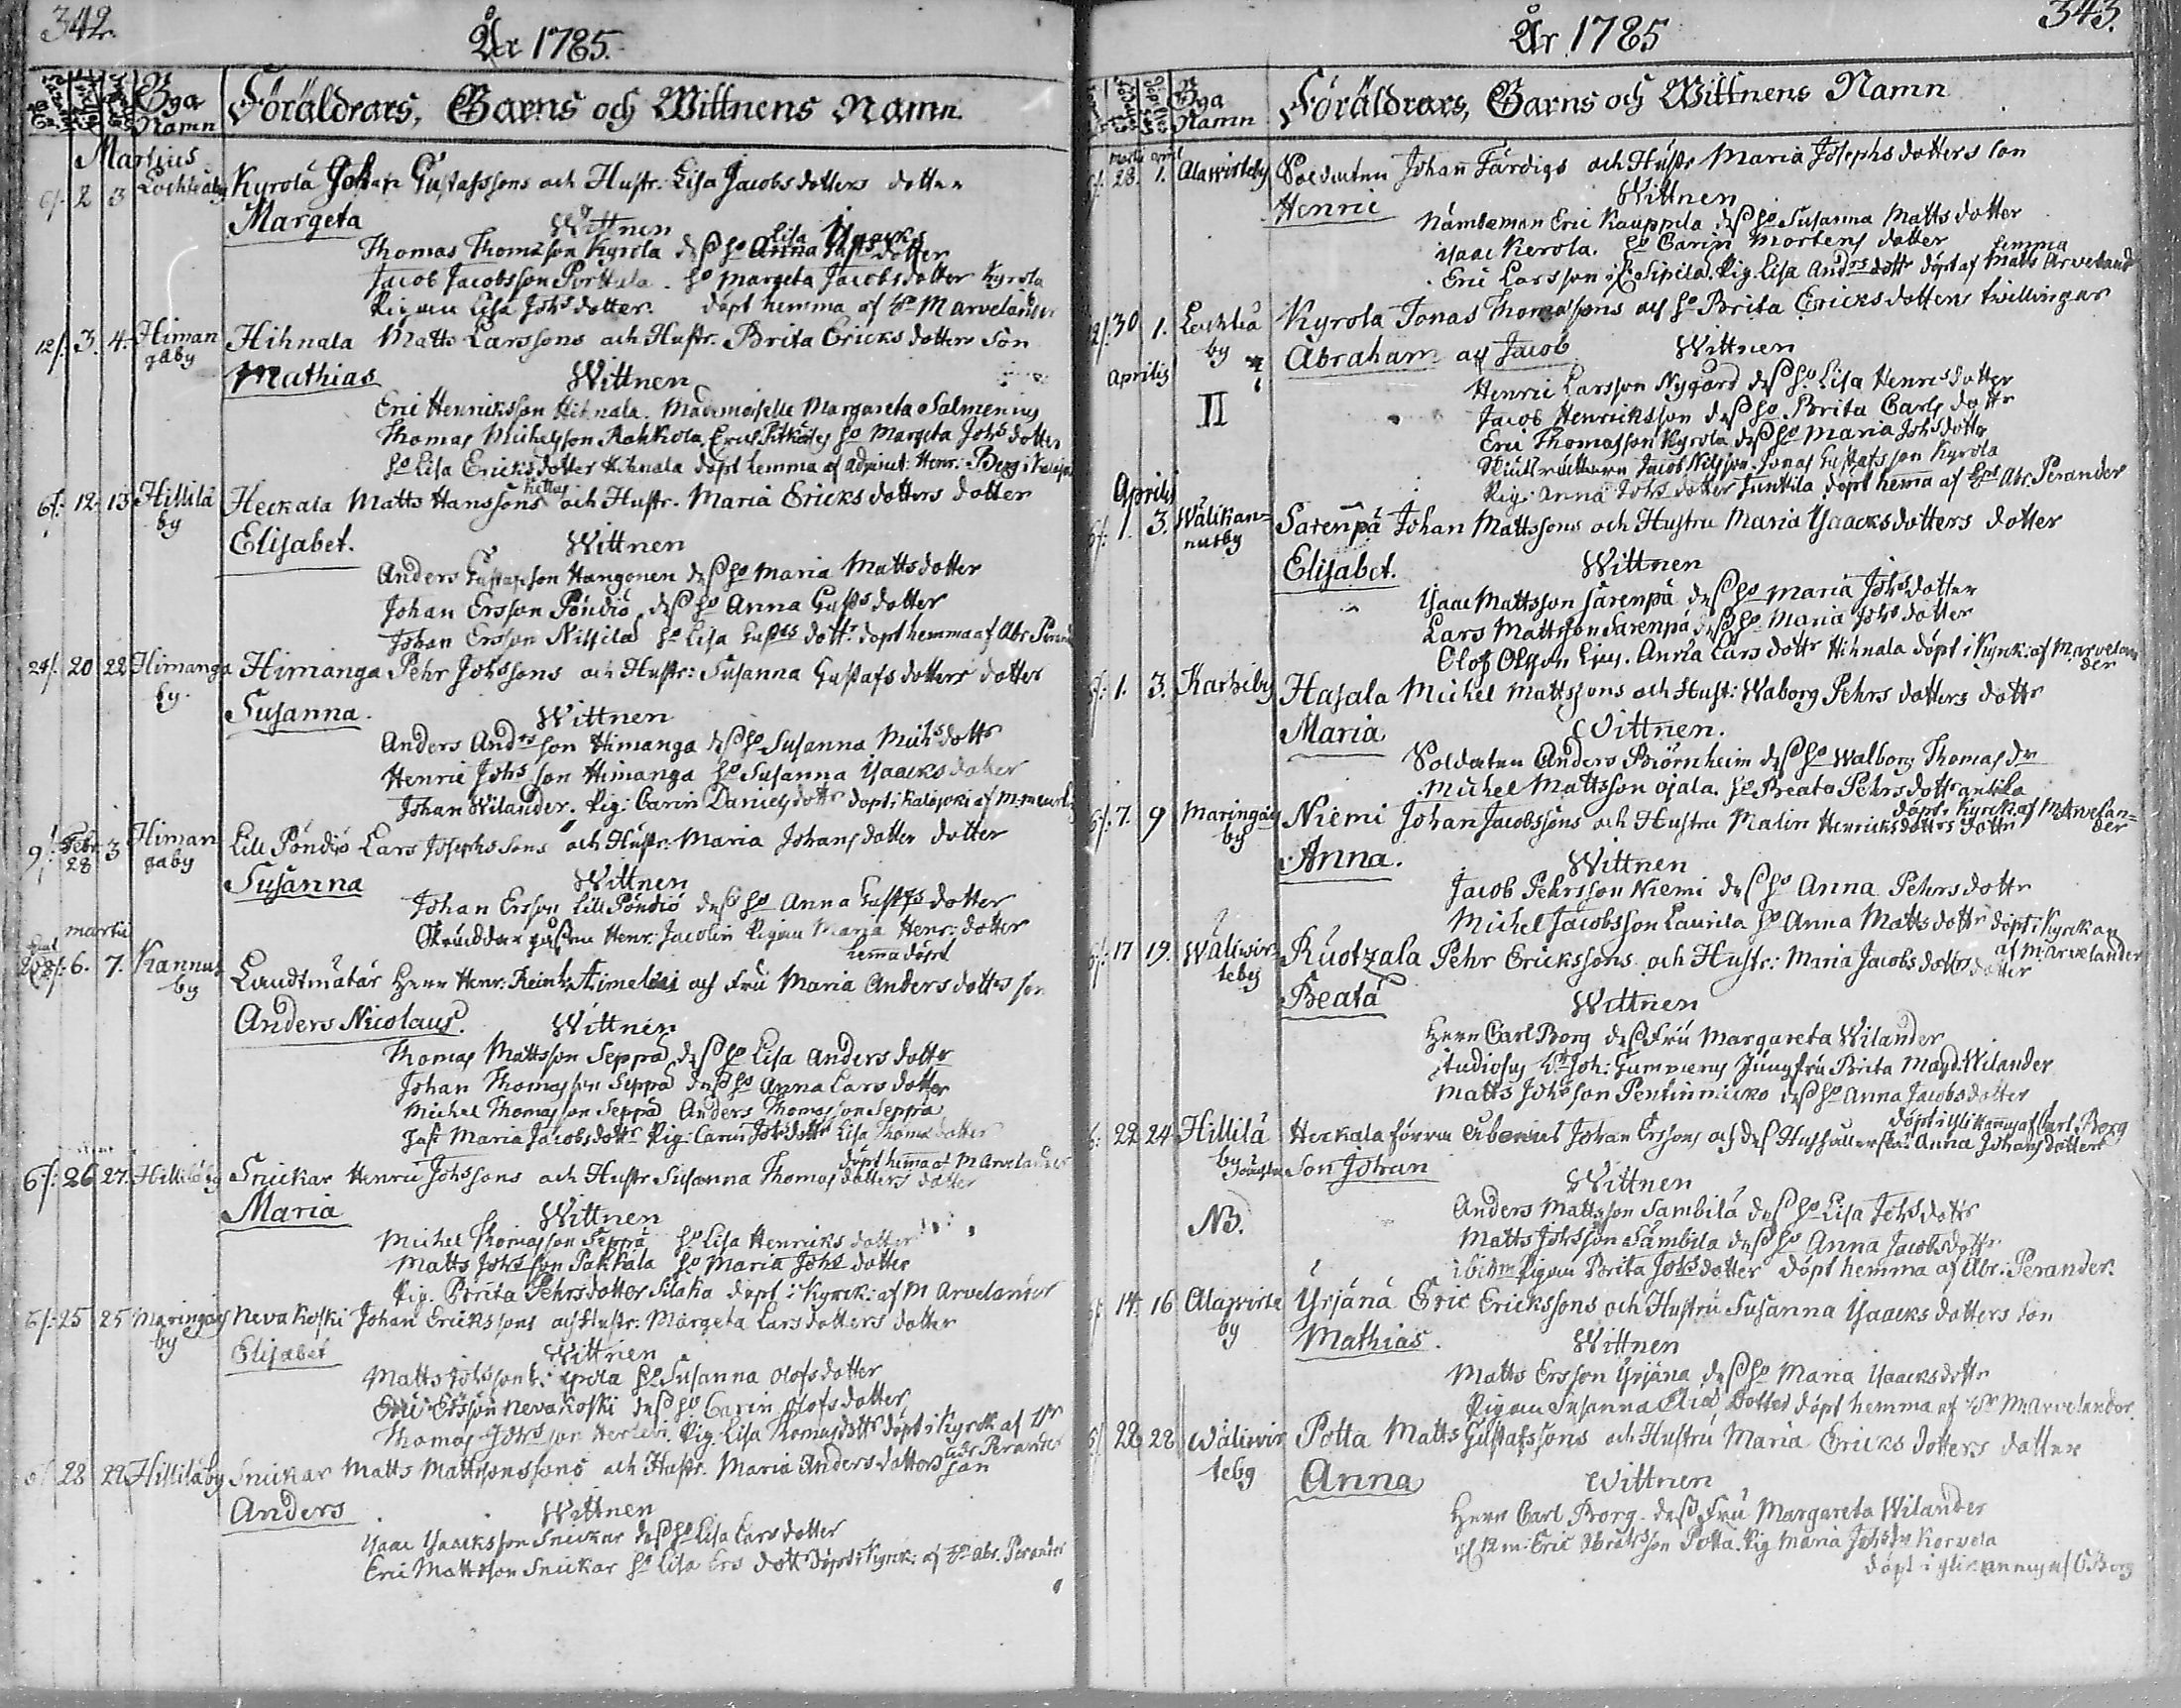 342.
År 1785.
Bya Namn
Föräldrars, Barns och Wittnens Namn.
Martius
6/. 2 3 Lochteåby Kyrola Johan Gustafssons och Hustr. Lisa Jacobs dotters dotter
Margeta Wittnen
Lisa Isaacks
Thomas Thomasson Kyrola dess ho Anna dotter
Jacob Jacobsson Porttula. ho Margeta Jacobsdotter Kyrola
Pigan Lisa Johs dotter. döpt hemma af M Arvelander
12/. 3. 4. Himan Hihnala Matts Larssons och Hustr. Brita Ericks dotters Son
gaby
Mathias Wittnen
Eric Henriksson Hihnala. Mademoiselle Margareta Salmenius
Thomas Michelsson Rahkola. ho Margeta Johs dotter
ho Lisa Ericksdotter Hihnala döpt hemma af Henr: Berg
6/. 12. 13 Hillilä Heckala Matts Hanssons och Hustr. Maria Ericks dotters dotter
by
Elisabet. Wittnen
Anders Gustafsson Hangonen dess ho Maria Matts dotter
Johan Ersson Pöndiö dess ho Anna Gusts dotter
Johan Ersson Nissilä ho Lisa dottr döpt hemma af Abr
24/. 20 22 Himanga Himanga Pehr Johssons och Hustr: Susanna Gustafs dotters dotter
by.
Susanna. Wittnen
Anders Andrsson Himanga dess ho Susanna Michs dottr
Henric Johsson Himanga ho Susanna Isaacks dotter
Johan Wilander. Pig: Carin Daniels dottr döpt i Kalajoki af
9/. Febr. 28 3 Himan Lill Pöndiö Lars Josephssons och Hustr: Maria Johans dotter dotter
gaby
Susanna Wittnen
Johan Ersson Lill Pöndiö dess ho Anna dotter
Henr: Jacolin Pigan Maria Henr: dotter
hemma döpt
martii
6. 7. Kannus Landtmätar Herr Henr: Reinh. och Fru Maria Anders dotters son
by
Anders Nicolaus. Wittnen
Thomas Mattsson Seppä dess ho Lisa Anders dottr
Johan Thomasson Seppä dess ho Anna Lars dotter
Michel Thomasson Seppä Anders Thomasson Seppä
Maria Jacobs dottr Pig: Carin Johs dottr Lisa Thoms dotter
döpt hemma af M Arvelander
6/. 26 27. Hilliläby Snickar Henric Johssons och Hustr Susanna Thomas dotters dotter
Maria Wittnen
Michel Thomasson Seppä ho Lisa Henricks dotter
Matts Johsson Pakkala ho Maria Johs dotter
Pig. Brita Pehrs dotter Silaka döpt i Kyrck: af M Arvelander
6/. 25 25 Maringais Nevakoski Johan Erickssons och Hustr: Margeta Lars dotters dotter
by
Elisabet Wittnen
Matts Johsson ho Susanna Olofs dotter
Eric Ersson Nevakoski dess ho Carin Olofs dotter
Thomas Johsson Herlevi. Pig: Lisa Thomas dottr döpt i Kyrck af
Abr Perander
6/ 22 22 Hilliläby Snickar Matts Mattssonssons och Hustr. Maria Anders dotters son
Anders Wittnen
Isaac Isaacksson Snickar dess ho Lisa Lars dotter
Eric Mattsson Snickar ho Lisa Ers dottr döpt i Kyrck: af Abr. Perander
343.
År 1785
Bya Namn
Föräldrars, Barns och Wittnens Namn
Martii april
6/. 28. 1. Alawirteby Soldaten Johan Färdigs och Hustr Maria Josephs dotters son
Henric Wittnen
Nämdeman Eric Kauppila dess ho Susanna Matts dotter
Isaac Kerola. ho Carin Mortens dotter
hemma
Eric Larsson Sipilä. Pig Lisa Andrs dottr döpt af Matts Arveland
30 1. Lochteå Kyrola Jonas Thomassons och ho Brita Ericks dotters twillingar
by
Abraham och Jacob Wittnen
Aprilis
Henric Larsson Nygård dess ho Lisa Henrics dotter
II
Jacob Henricksson dess ho Brita Carls dottr
Eric Thomasson Kyrola dess ho Maria Johs dottr
Jacob Nilsson. Jonas Gustafsson Kyrola
Pig: Anna Johs dotter Junttila döpt hema af Abr. Perander
Aprilis
6/. 1. 3. Wälikan= Sarenpä Johan Mattssons och Hustru Maria Isaacksdotters dotter
nusby
Elisabet. Wittnen
Isaac Mattsson Sarenpä dess ho Maria Johs dotter
Lars Mattsson Sarenpä dess ho Maria Johs dotter
Olof Olsson Ljus. Anna Lars dottr Hihnala döpt i Kyrck: af M arvelan
der
6/. 1. 3. Karhiby Hasala Michel Mattssons och Hust: Waborg Pehrs dotters dottr
Maria Wittnen.
Soldaten Anders Biörnheim dess ho Walborg Thomas dr
Michel Mattsson Ojala. ho Beata Pehrs dottr Anttila
döpt i Kyrck af M Arvelan=
der
6/. 7. 9 Maringais Niemi Johan Jacobssons och Hustru Malin Henricks dotters dottr
by
Anna. Wittnen
Jacob Pehrsson Niemi dess ho Anna Pehrs dottr
Michel Jacobsson Laurila ho Anna Matts dottr döpt i Kyrckan
af M: Arvelander
6/. 17 19. Wäliwir= Ruotzala Pehr Erickssons och Hustr: Maria Jacobs dotters dotter
teby
Beata Wittnen
Herr Carl Borg dess Fru Margareta Wilander
Studiosus Joh: Gummerus Jungfru Brita Magd. Wilander
Matts Johsson Penttinmicko dess ho Anna Jacobs dotter
döpt i Ylikannus af Carl Borg
6: 22 24 Hillilä Heckala Johan Erssons och dess Anna Johans dotters
by
Son Johan Wittnen
NB.
Anders Mattsson Sambila dess ho Lisa Johs dottr
Matts Johsson Sambila dess ho Anna Jacobs dottr
ibidm Pigan Brita Johs dotter döpt hemma af Abr: Perander.
6/. 14. 16 Alawirte Yrjänä Eric Erickssons och Hustru Susanna Isaacks dotters son
by
Mathias. Wittnen
Matts Ersson Yrjänä dess ho Maria Isaacks dottr
Pigan Susanna Elias Dotter döpt hemma af M: Arvelander.
6/ 22 22 Wäliwir Potta Matts Gustafssons och Hustru Maria Ericks dotters dotter
teby
Anna Wittnen
Herr Carl Borg. dess Fru Margareta Wilander
Eric Abrahsson Potta. Pig Maria Johs dr Korvela
döpt i Ylikannus af C Borg